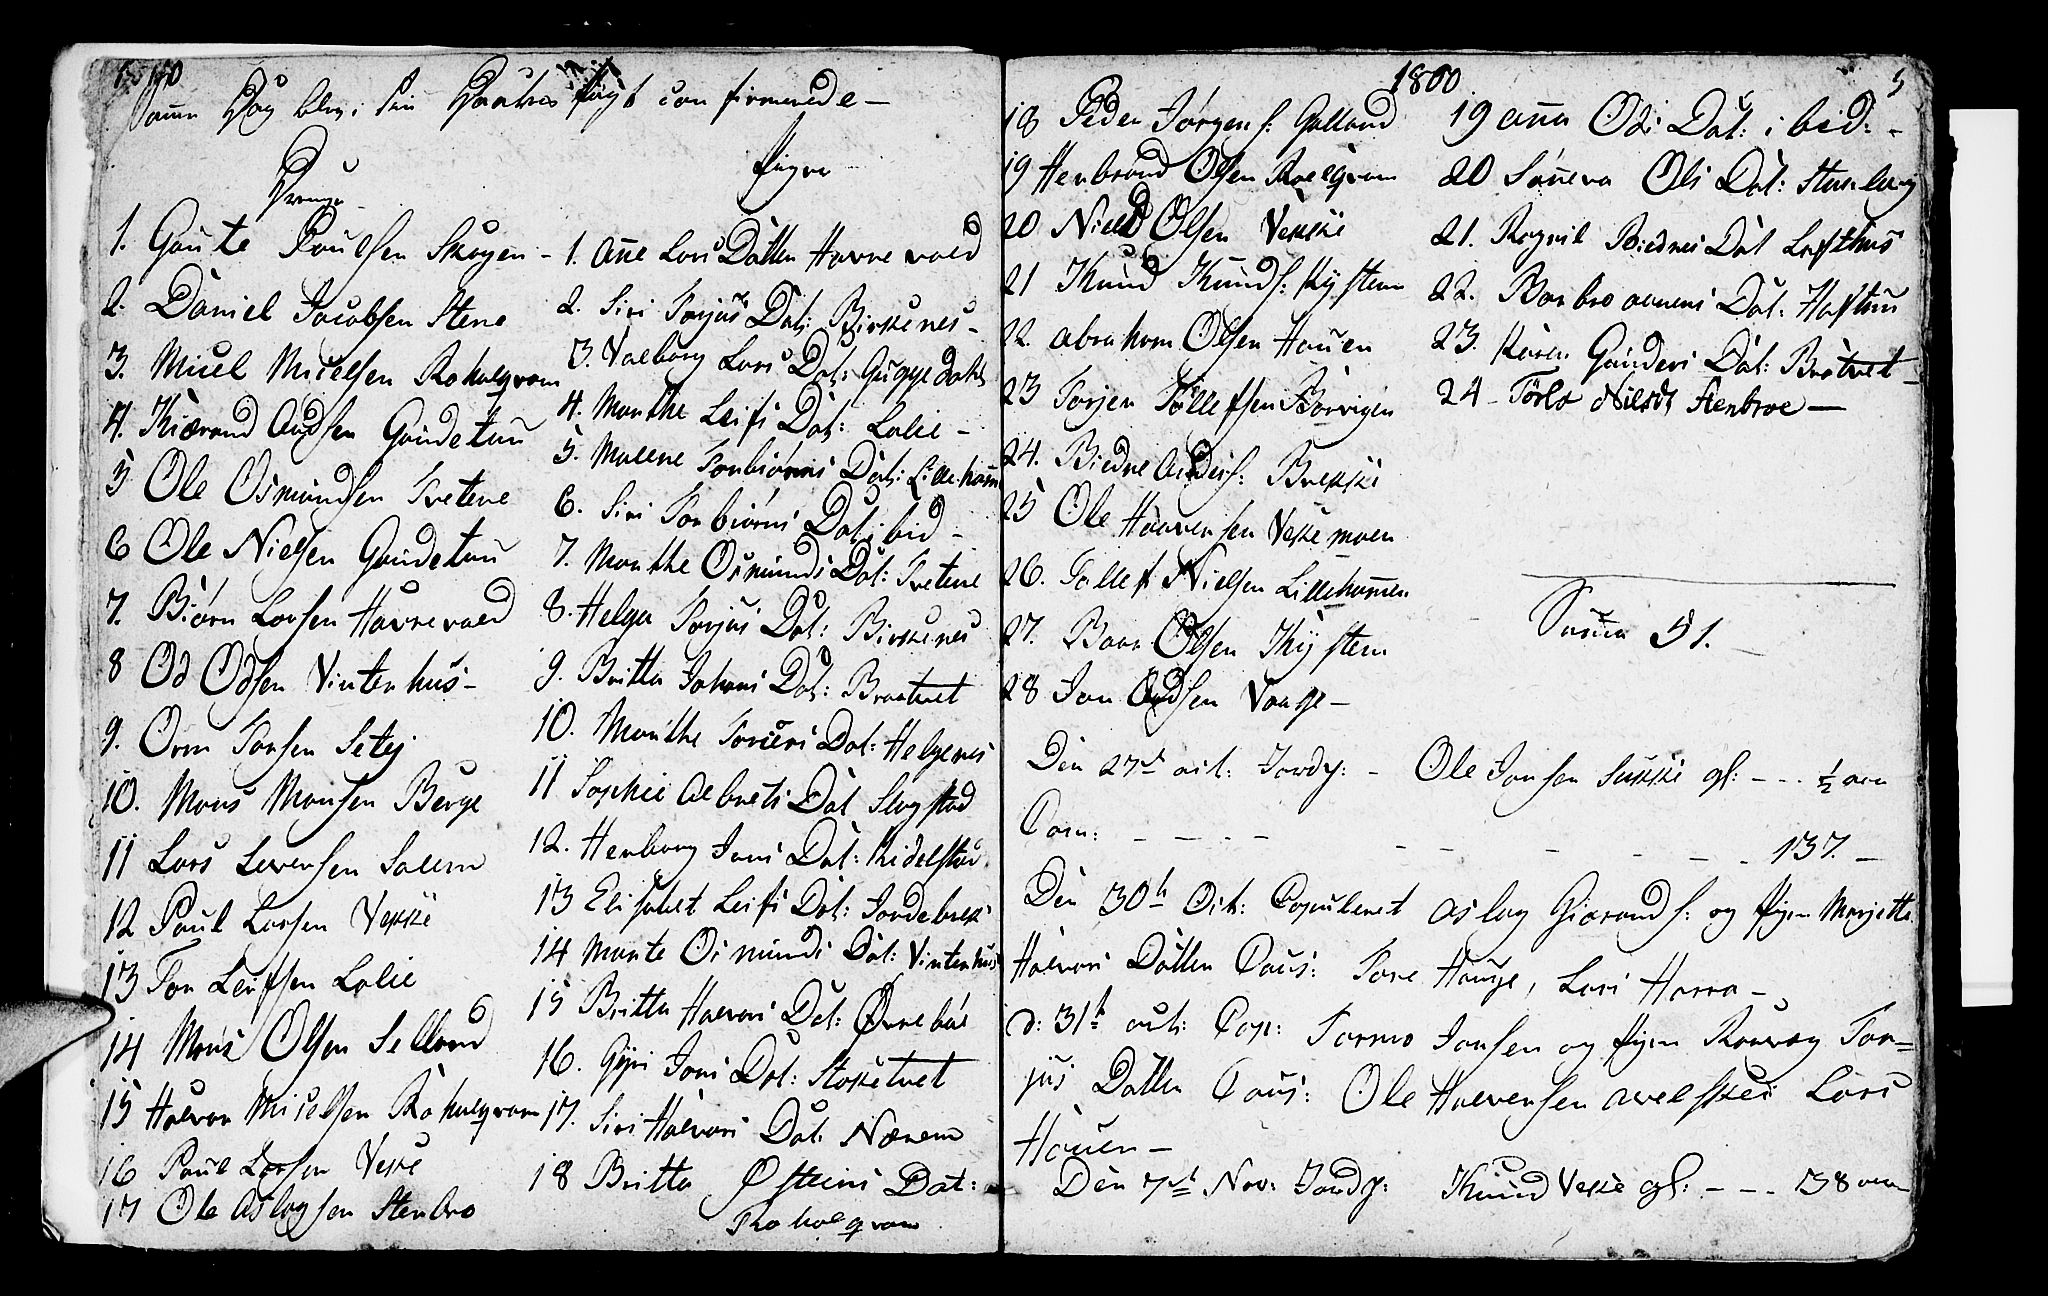 Samme Dag blev i confirmerede –
Drenge
1. Gaute Poulsen Skogen –
2. Daniel Jacobsen Stene
3. Micel Micelsen Rohalqvam
4. Kiærand Andsen Gundetun
5 Ole Osmundsen Tvetene
6 Ole Nielsen Gundetun
7. Biørn Larsen Havrevold
8 Od Odsen Vintenhus –
9. Orm Torsen Setej
10. Mons Monsen Berge
11 Lars Severensen Salem
12 Paul Larsen Vekke
13 Tor Leifsen Lalie
14 Mons Olsen Selland
15 Halvor Micelsen Rohalqvam
16 Paul Larsen Veke
17 Ole Aslagsen Stenbro
Piger
1. Ane Lars Datter Havrevold
2. Siri Torjus Dat: Birkenes –
3. Valborg Lars Dat: Guggedahl
4. Marthe Leifs Dat: Lalie –
5. Malene Torbiørns Dat: Lillehamm
6. Siri Torbiørns Dat: ibid –
7. Marthe Osmunds Dat: Tvetene
8. Helga Torjus Dat: Birkenes
9. Britta Johans Dat: Braatvet
10. Marthe Toriers Dat: Helgenes
11 Sophie Albrets Dat Slagstad
12. Herborg Jons Dat: Kidelstad
13 Elisabet Leifs Dat: Jordebrek
14 Marte Osmunds Dat: Vintenhus
15 Britta Halvors Dat: Øvrebøe
16. Gyri Jons Dat: Stokketvet
17. Siri Halvors Dat: Nærem
18 Britta Østeins Dat:
Rohalqvam
1800
5
18 Peder Jørgens: Galland
19 Herbrand Olsen Roelqvam
20 Niels Olsen Vekke
21 Knud Knuds: Kysten
22. Abraham Olsen Hauen
23 Torjer Tollefsen Børvigen
24. Biedne Anders: Brekke
25 Ole Haavorsen Vekemoen
26. Tollef Nielsen Lillehamen
27. Baar Olsen Thysten
28 Jon Andsen Vaage –
19 Ana Ods Dat: ibid: –
20 Søneva Ols Dat: Stuelang
21. Ragnil Biednes Dat Lofthus
22. Barbro Dat: Haftun
23. Karen Gunders Dat: Bratvet –
24 – Torlo Niels Stenbroe –
Suma 51.
Den 27de oct: Jordf: – Ole Jonsen Sukke gl: – – – ½ aar
Com: – – – – – – – – – – 137. –
Den 30te Oct: Copuleret Aslag Giærands: og Pigen Marjette
Halvors Datter Caus: Tore Hauge, Lars Harra –
d: 31te oct: Cop: Tarmo Jonsen og Pigen Ranvog Tor=
jus Datter Caus: Ole Halvorsen Lars
Hauen –
Den 7de Nov: Jordf: Knud Veke gl: – – – 38 aar